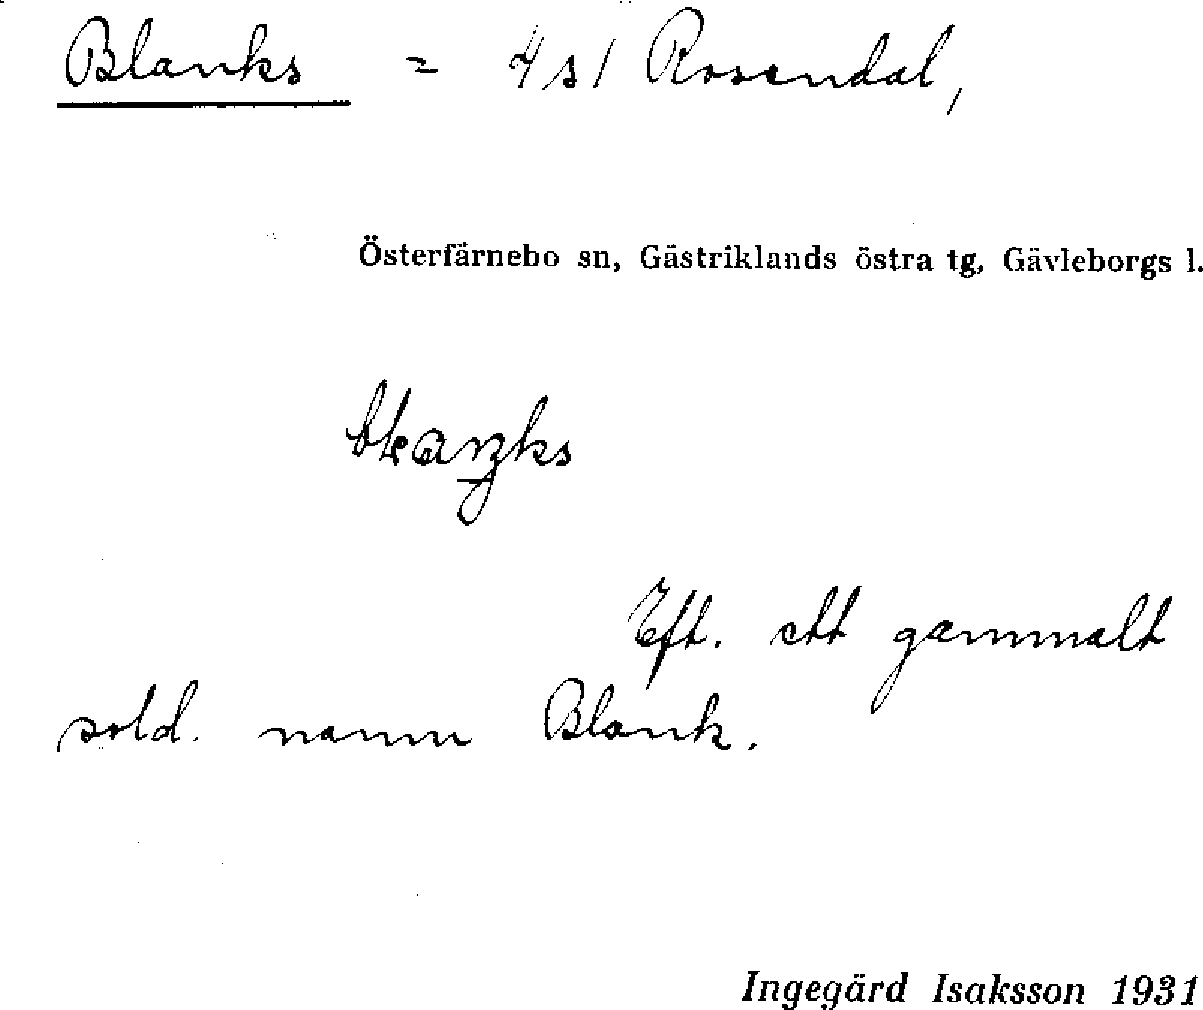 Blanks = 4/s1 Rosendal,
Österfärnebo sn, Gästriklands östra tg, Gävleborgs l.
Eft. ett gammalt
sold. namn Blank.
Ingegärd Isaksson 1931